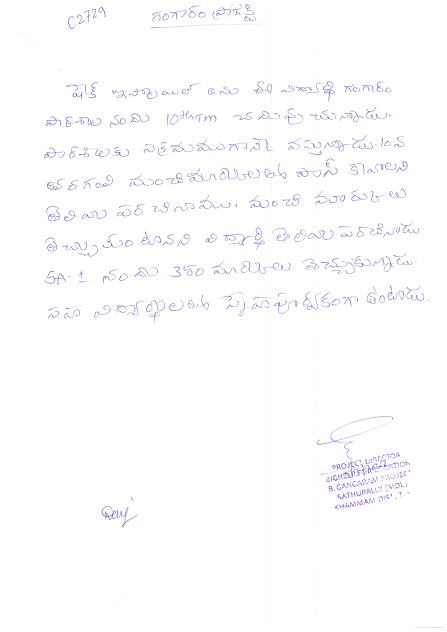 C2729
గంగారం ప్రాజెక్ట్
షేక్ ఇస్మాయిల్ అను ఈ విద్యార్థి గంగారం
పాఠశాల నందు 10th TM చదువుచున్నాడు.
పాఠశాలకు సక్రమముగానే వస్తున్నాడు. 10వ
తరగతి మంచి మార్కులతో పాస్ కావాలని
తెలియపరచినాము. మంచి మార్కులు
తెచ్చుకుంటానని విద్యార్థి తెలియపరచినాడు
SA-1 నందు 380 మార్కులు తెచ్చుకున్నాడు.
సహ విద్యార్థులతో స్నేహపూర్వకంగా ఉంటాడు.
PROJECT DIRECTOR
B. GANGARAM PROJECT
SATHUPALLY (MDL)
KHAMMAM DIST.